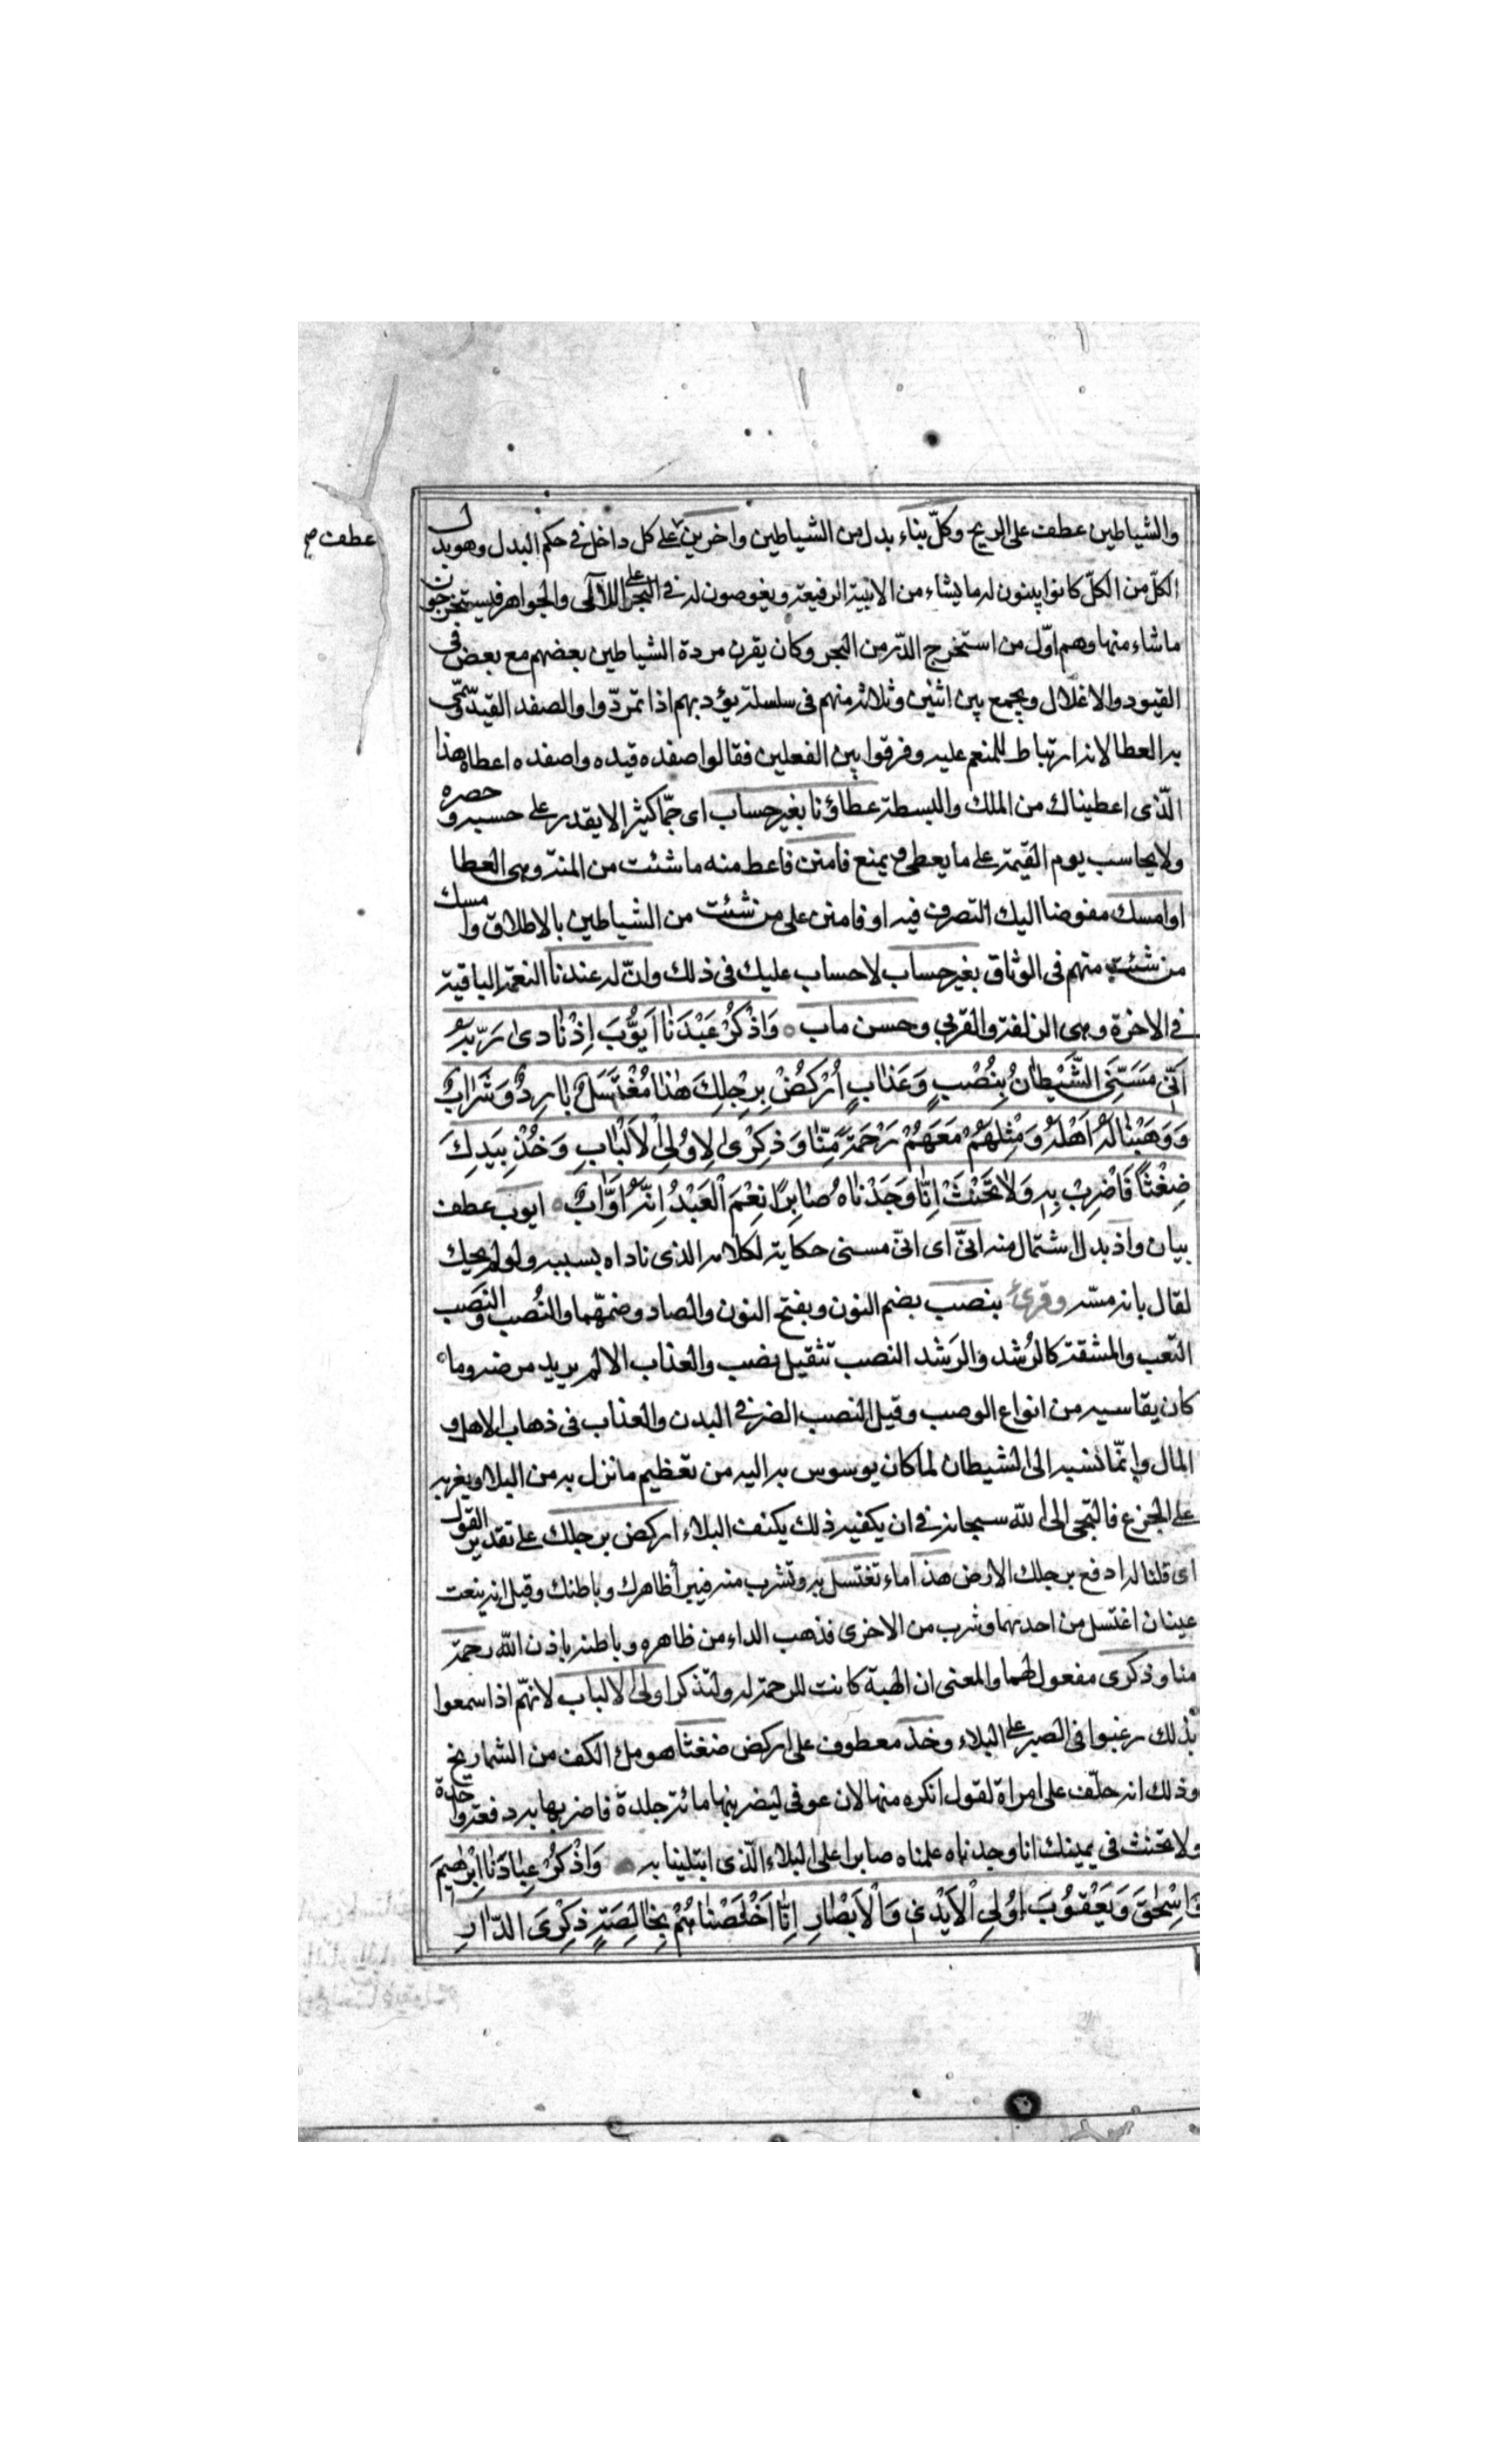 والشياطين عطف على الريح وكلّ بناء بدل من الشياطين واخرين على كل داخل في حكم البدل وهو بدل
عطف صح
الكلّ من الكلّ كانوا يبنون له ما يشاء من الابنية الرفيعة ويغوصون له في البحر على اللآلى والجواهر فيستخرجون
ما شاء منها وهم اوّل من استخرج الدّر من البحر وكان يقرن مردة الشياطين بعضهم مع بعض في
القيود والاغلال ويجمع بين اثنين وثلاثة منهم في سلسلة يؤدبهم اذا تمرّدوا والصفد القيد وسمّى
به العطا لانه ارتباط للمنعم عليه وفرقوا بين الفعلين فقالوا صفده قيده واصفده اعطاه هذا
الّذى اعطيناك من الملك والبسطة عطاؤنا بغير حساب اى جمّا كثيرا لا يقدر على حسبه وحصره
ولا يحاسب يوم القيمة على ما يعطى ويمنع فامنن فاعط منه ما شئت من المنة وهى العطا
او امسك مفوضا اليك التصرف فيه او فامنن على من شئت من الشياطين بالاطلاق وامسك
من شئت منهم فى الوثاق بغير حساب لا حساب عليك فى ذلك وانّ له عندنا النعمة الباقية
في الاخرة وهى الزلفة والقربي وحسن ماب وَاذْكُرْ عَبْدَنٰا اَيُّوبَ اِذْ نٰادىٰ رَبَّهُ
اَنّى مَسَّنِىَ الشَّيْطٰانُ بِنُصْبٍ وَعَذٰابٍ اُرْكُضْ بِرِجْلِكَ هٰذٰا مُغْتَسَلٌ بٰارِدٌ وَشَرٰابٌ
وَوَهَبْنٰا لَهُ اَهْلَهُ وَمِثْلَهُمْ مَعَهُمْ رَحْمَةً مِنّٰا وَذِكْرىٰ لِاُولِى الْاَلْبٰابِ وَخُذْ بِيَدِكَ
ضِغْثاً فَاضْرِبْ بِهِ وَلٰا تَحْنَثْ اِنّٰا وَجَدْنٰاهُ صٰابِرًا نِعْمَ الْعَبْدُ اِنَّهُ اَوّٰابٌ ايوب عطف
بيان واذ بدل الاشتمال منه انىّ اى انىّ مسنى حكاية لكلامه الذى ناداه بسببه ولو لم يحك
لقال بانه مسّه وقرئ بنصب بضم النون وبفتح النون والصاد وضمهّما والنُصب والنَصَب
التعب والمشقة كالرُشد والرَشد النصب تثقيل نصب والعذاب الالم يريد مرضه وما
كان يقاسيه من انواع الوصب وقيل النصب الضر في البدن والعذاب فى ذهاب الاهل و
المال وانمّا نسبه الى الشيطان لما كان يوسوس به اليه من تعظيم ما نزل به من البلاء ويغريه
على الجزع فالتجى الى الله سبحانه في ان يكفيه ذلك بكشف البلاء اركض برجلك على تقدير القول
اى قلنا له ادفع برجلك الارض هذا ماء تغتسل به وتشرب منه فيبرأ ظاهرك وباطنك وقيل انه ينبعت
عينان اغتسل من احديهما وشرب من الاخرى فذهب الداء من ظاهره وباطنه باذن الله رحمة
منا وذكرى مفعول لهما والمعنى ان الهبة كانت للرحمة له ولتذكر اولى الالباب لانهّم اذا سمعوا
بذلك رغبوا فى الصبر على البلاء وخذ معطوف على اركض ضغثا هو ملء الكف من الشماريخ
وذلك انه حلف على امراة لقول انكره منها لان عوفى ليضربنها مائة جلدة فاضربها به دفعة واحدة
ولا تحنث فى يمينك انا وجدناه علمناه صابرا على البلاء الّذى ابتلينا به وَاذْكُرْ عِبٰادَنٰا اِبْرٰهيمَ
وَاِسْحٰقَ وَيَعْقُوبَ اوُلِى الْاَيْدى وَالْاَبْصٰارِ اِنّٰا اَخْلَصْنٰاهُمْ بِخٰالِصَةٍ ذِكْرَى الدّٰارِ